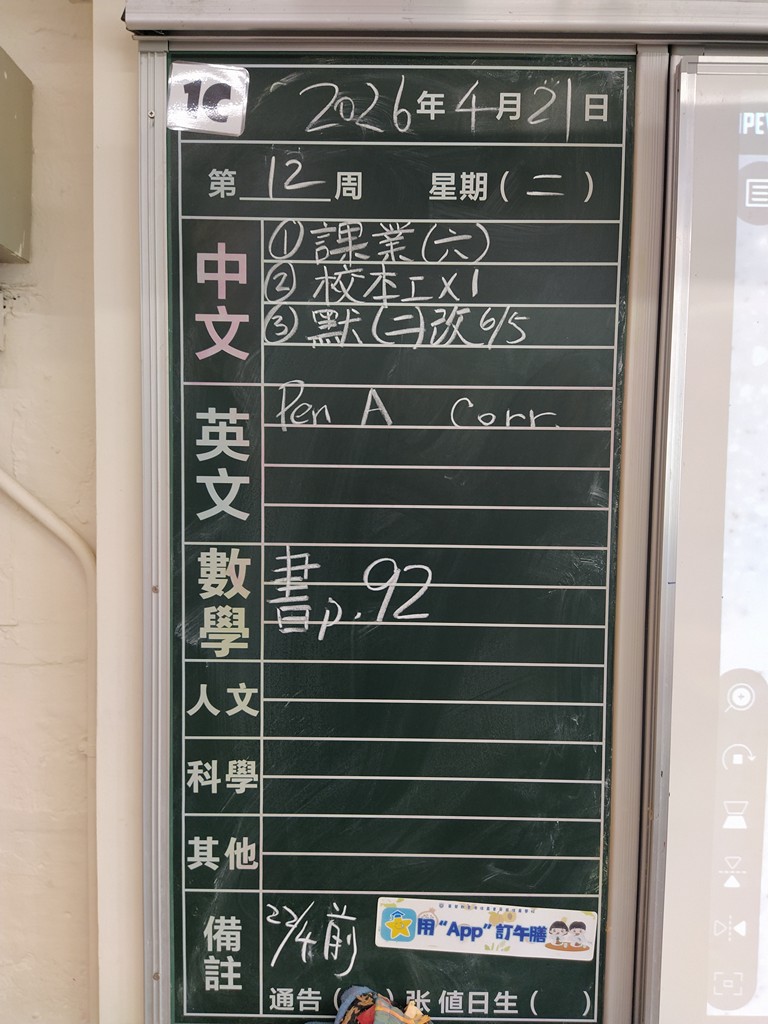 1C 2026年4月21日
第12周 星期(二)
中文
① 課業(六)
② 校本工x1
③ 默(二)改6/5
英文
Pen A Corr.
數學
書p.92
人文
科學
其他
備註
22/4前
用“App”訂午膳
通告( )张 值日生( )